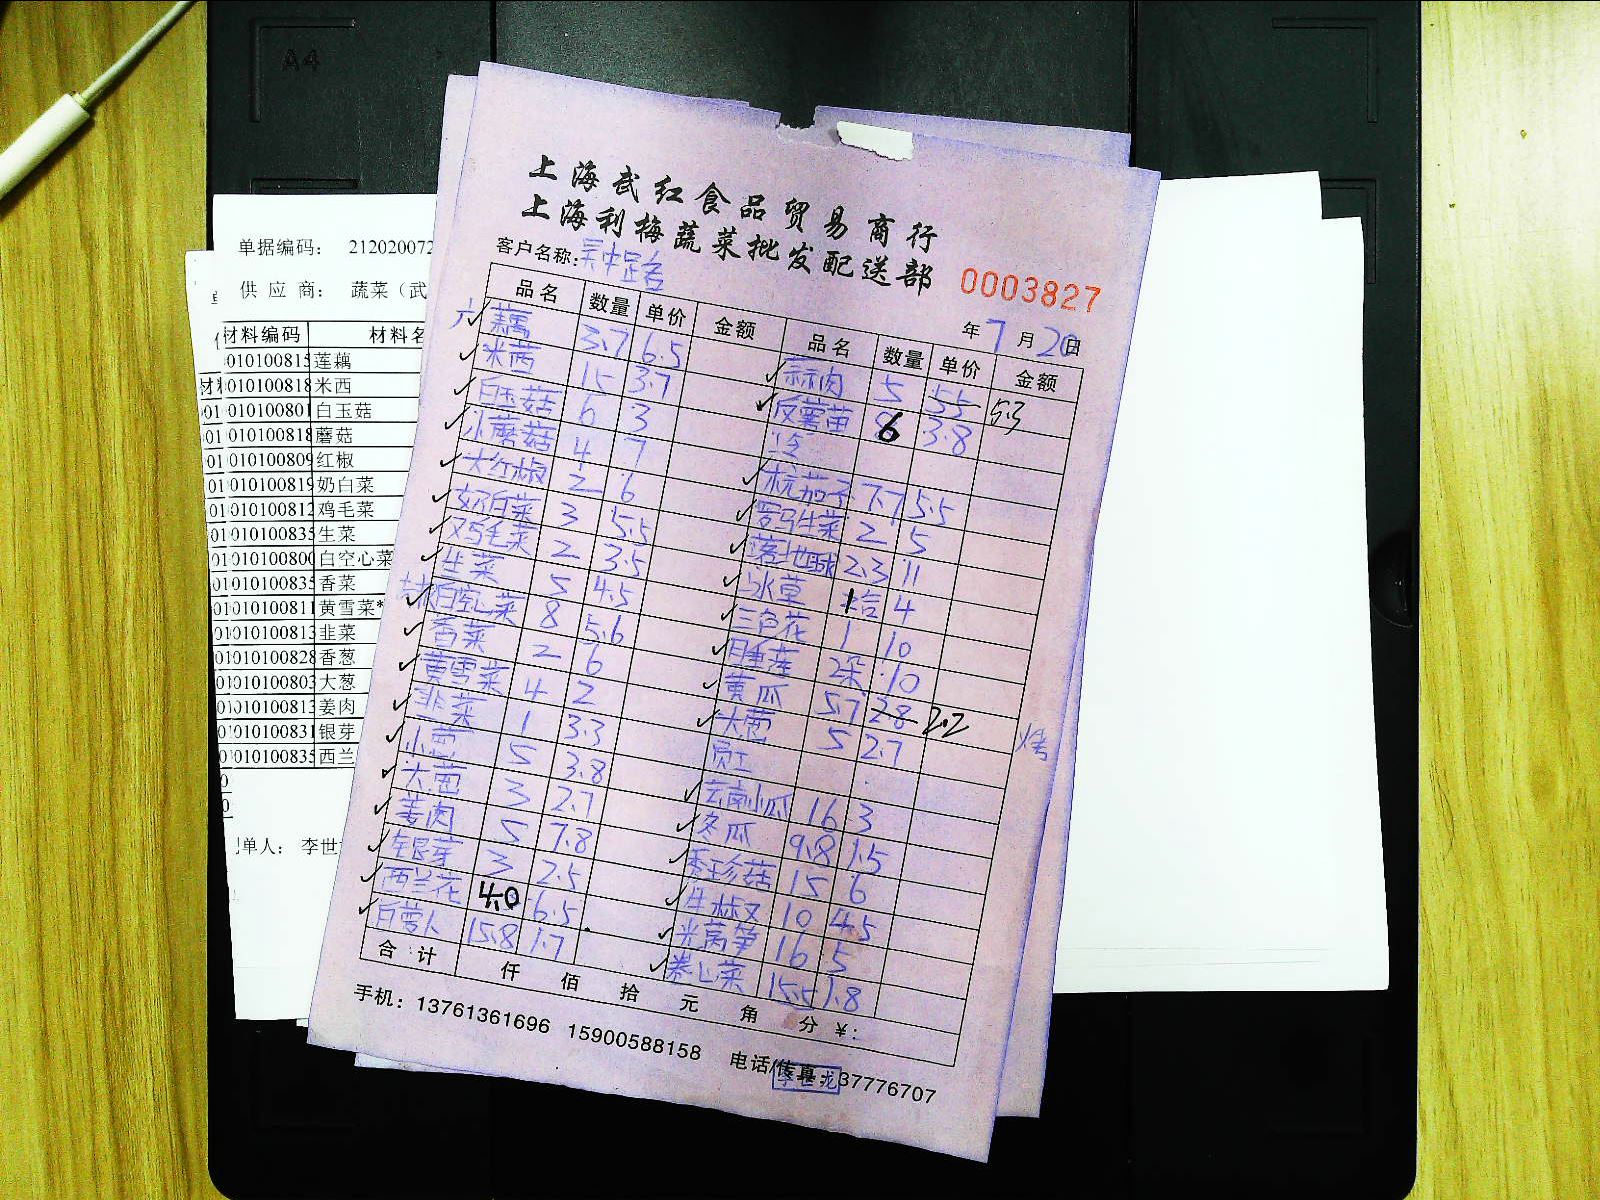 A4
单据编码： 212020072
供 应 商： 蔬菜（武
材料编码 材料名
010100815 莲藕
010100818 米西
010100801 白玉菇
010100818 蘑菇
010100809 红椒
010100819 奶白菜
010100812 鸡毛菜
010100835 生菜
010100800 白空心菜
010100835 香菜
010100811 黄雪菜*
010100813 韭菜
010100828 香葱
010100803 大葱
010100813 姜肉
010100831 银芽
010100835 西兰
单人： 李世
上海武红食品贸易商行
上海利梅蔬菜批发配送部
客户名称：吴中路店
0003827
年 7 月 20 日
品名 数量 单价 金额 品名 数量 单价 金额
藕 3.7 6.5 蒜肉 5 5.5 5.3
米茜 15 3.7 反薯苗 6 3.8
白玉菇 6 3
小蘑菇 4 7 杭茄子 7.7 5.5
大红椒 2 6 罗马生菜 2 5
奶白菜 3 5.5 落地球 2.3 11
鸡毛菜 2 3.5 冰草 1合 4
生菜 5 4.5 三色花 1 10
白空心菜 8 5.6 睡莲 2朵 10
香菜 2 6 黄瓜 5.7 2.8 2.2
黄雪菜 4 2 大葱 5 2.7
韭菜 1 3.3 员工
小葱 5 3.8 云南小瓜 16 3
大葱 3 2.7 冬瓜 9.8 1.5
姜肉 5 7.8 秀珍菇 15 6
银芽 3 2.5 生椒 10 4.5
西兰花 4.0 6.5 米莴笋 16 5
白萝卜 15.8 1.7 卷心菜 15.5 1.8
合 计 仟 佰 拾 元 角 分 ￥：
手机：13761361696 15900588158 电话/传真：37776707